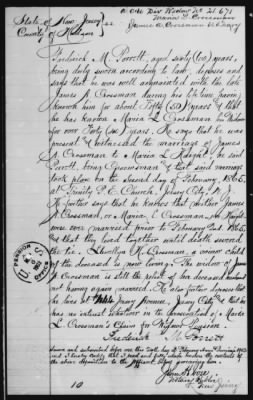 State of New Jersey } ss
County of Hudson
Maria L. Crossman
James A. Crossman
Fredrick M. Porrett, aged sixty (60) years,
being duly sworn according to law, deposes and
says that he was well acquainted with the late
James A. Crossman during his life time, having
known him for about Fifty (50) years, & that
he has known Maria L. Crossman his Widow
for over Forty (40) years. He says that he was
present & witnessed the marriage of James
A. Crossman to Maria L. Knight, he said
Porrett, being Groomsman & that said event
took place on the second day of February 1865,
at Trinity P. E. Church, Jersey City, N. J.
He further says that he knows that neither James
A. Crossman, or Maria L. Crossman, nee Knight
were ever married prior to February 2nd 1865,
and that they lived together until death severed
the tie. R. Crossman, a child
of the deceased is now living. The widow of James
A. Crossman is still the relict of her deceased husband
not having again married. He also further deposes that
he lives at Jersey Avenue, Jersey City & that he
has no interest whatever in the prosecution of Maria
L. Crossman's Claim for Widow's Pension.
Fredrick M. Porrett
Sworn and subscribed before me this
and I hereby certify that I read and fully the contents of
the above deposition to the before
Notary Public
New Jersey
10